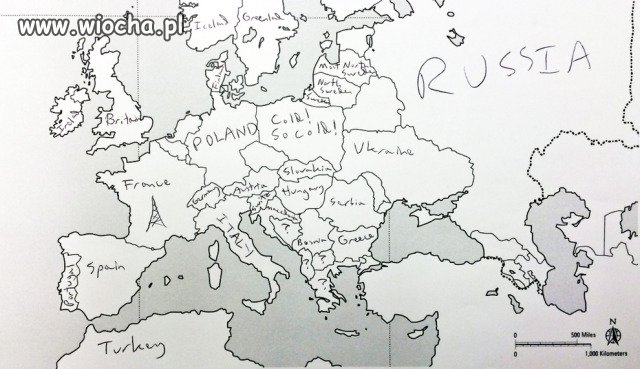 www.wiocha.pl
Greenland
RUSSIA
North
Sweden
Britain
POLAND
Cold!
So Cold!
Ukraine
France
Slovakia
Austria
Hungary
Serbia
?
Bosnia
Greece
?
?
?
Spain
Turkey
N
0 500 Miles
0 1,000 Kilometers